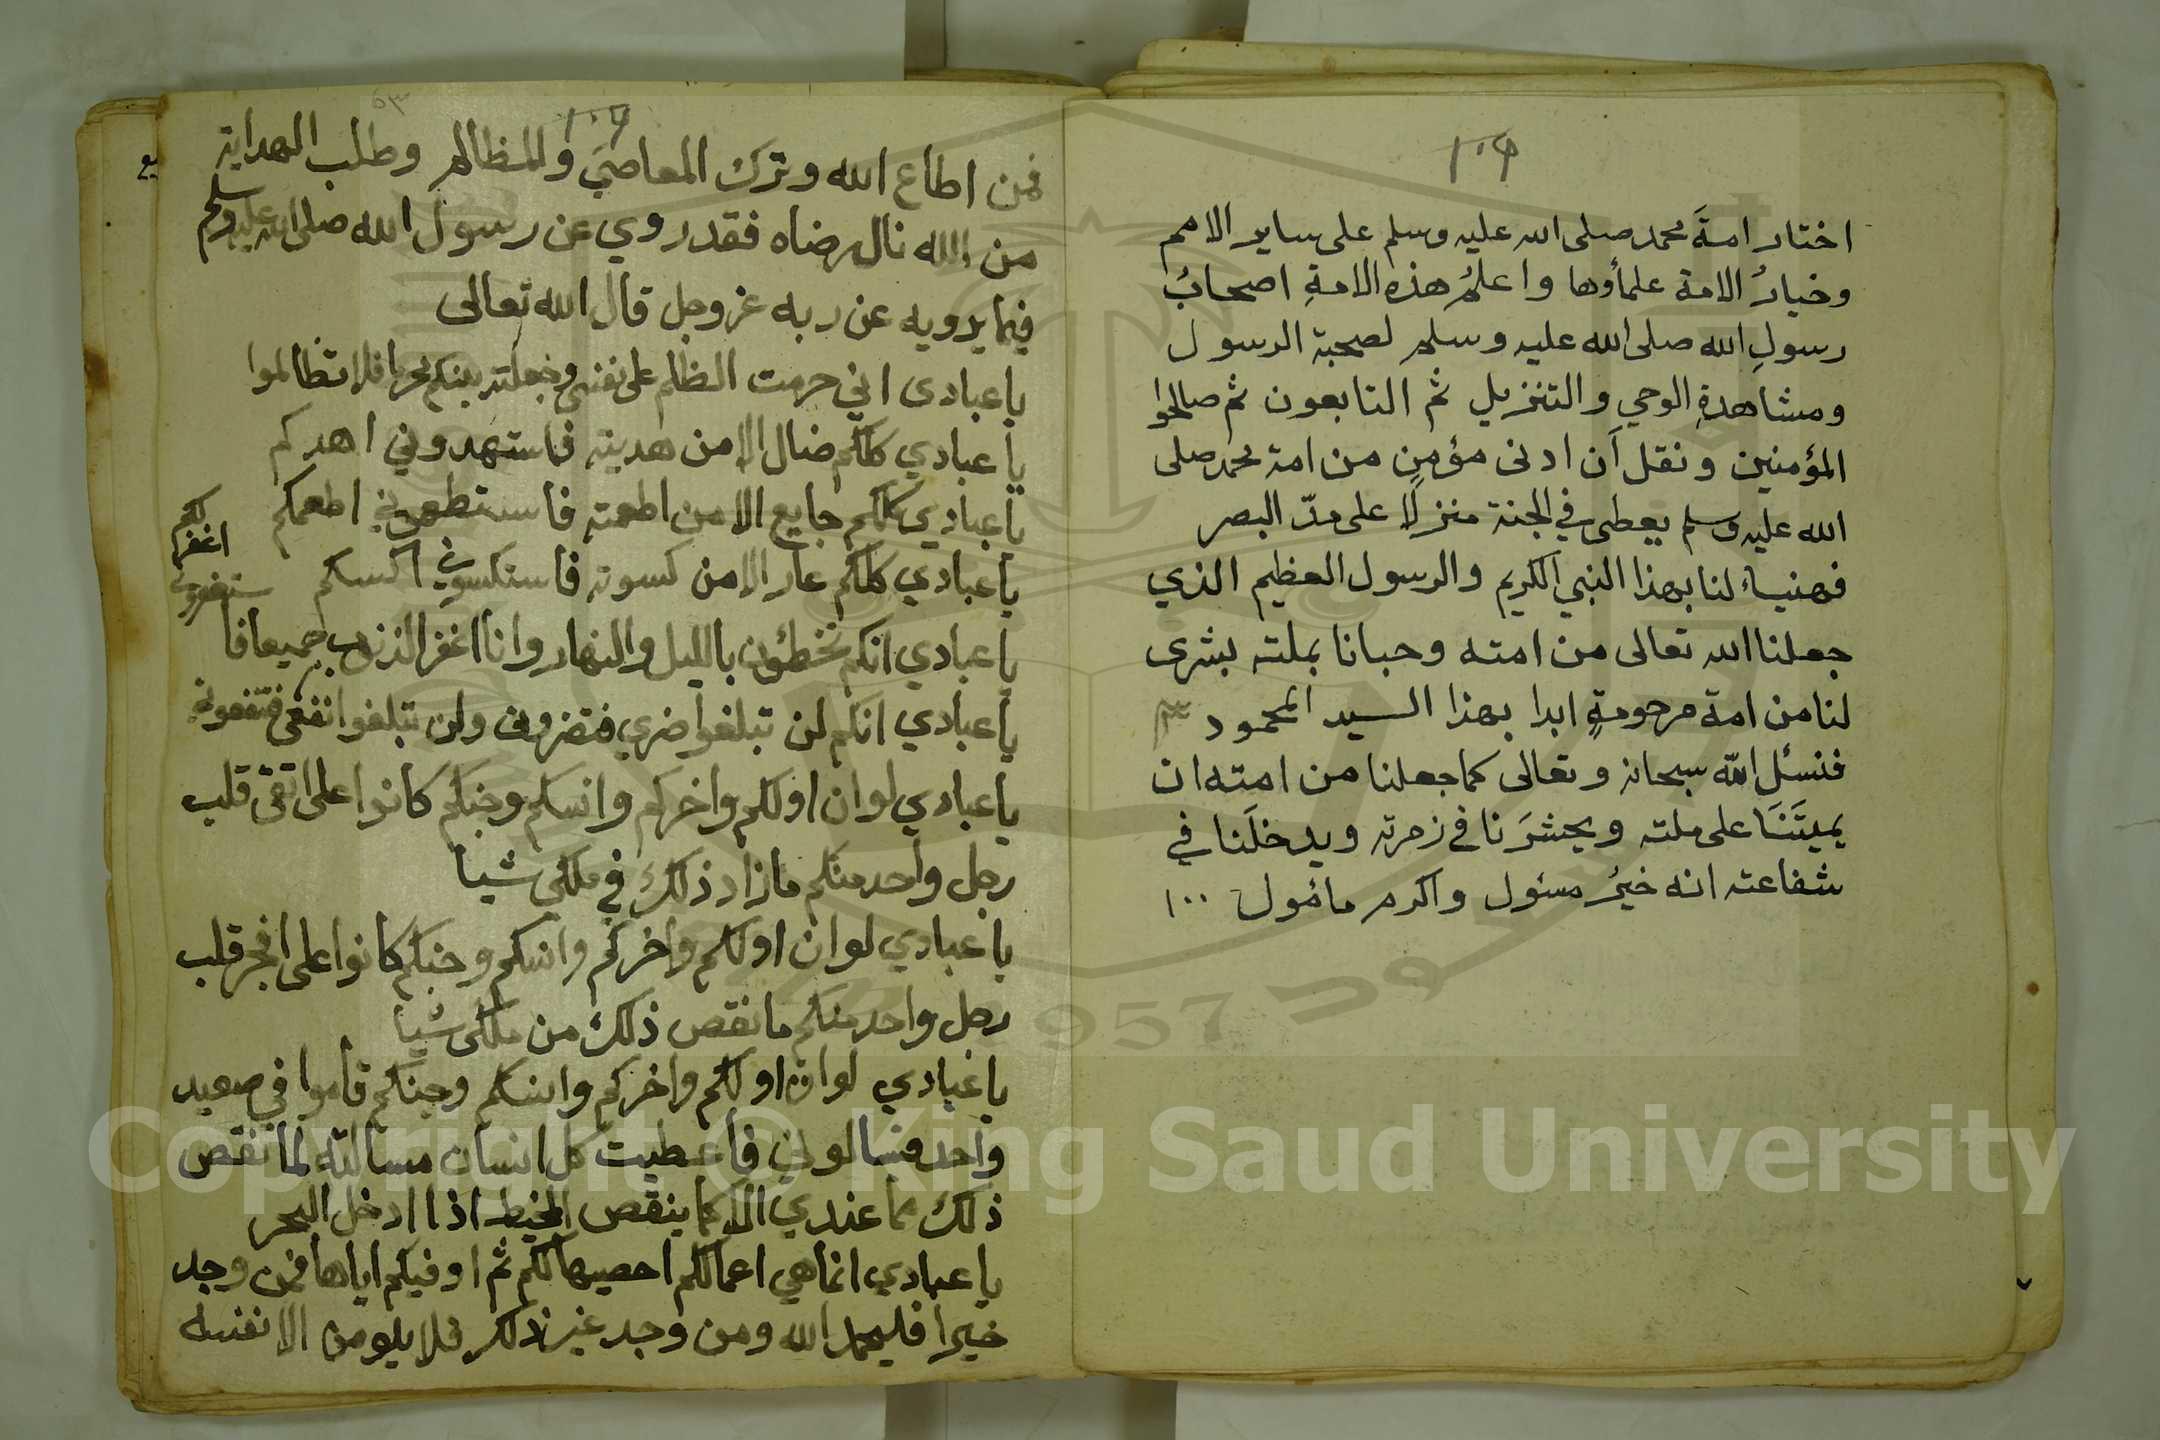 ١٠٩
اختار امةَ محمد صلى الله عليه وسلم على ساير الامم
وخيارُ الامة علمأوها واعلمُ هذه الامةِ اصحابُ
رسولِ الله صلى الله عليه وسلم لصحبة الرسول
ومشاهدةِ الوحي والتنزيل ثم التابعون ثم صالحوا
المؤمنين ونقل اَن ادنى مؤمنٍ من امة محمد صلى
الله عليه وسلم يعطى في الجنة منزلًا على مدّ البصر
فهنيـاء لنا بهذا النبي الكريم والرسول العظيم الذي
جعلنا الله تعالى من امته وحبانا بملته بشرى
لنا من امة مرحومةٍ ابدا بهذا السيد المحمود
فنسئل الله سبحانه وتعالى كما جعلنا من امته ان
يميتَنَا على ملته ويحشرَنا في زمرته ويدخلَنا في
شفاعته انه خيرُ مسئول واكرم مائمول ١٠٠
فمن اطاع الله وترك المعاصيَ والمظالم وطلب الهداية
من الله نال رضاه فقد روي عن رسول الله صلى الله عليه وسلم
فيما يرويه عن ربه عز وجل قال الله تعالى
يا عبادى اني حرمت الظلم على نفسي وجعلته بينكم محرما فلا تظالموا
يا عبادي كلكم ضال الا من هديته فاستهدوني اهدكم
يا عبادي كلكم جايع الا من اطعمته فاستطعموني اطعمكم
يا عبادي كلكم عار الا من كسوته فاستكسوني اكسكم
يا عبادي انكم تخطئون بالليل والنهار وانا اغفر الذنوب جميعا فا
ستغفروني اغفر لكم
يا عبادي انكم لن تبلغوا ضري فتضروني ولن تبلغوا نفعي فتنفعوني
يا عبادي لو ان اولكم واخركم وانسكم وجنكم كانوا على اتقى قلب
رجل واحد منكم ما زاد ذلك في ملكي شيا
يا عبادي لو ان اولكم واخركم وانسكم وجنكم كانوا على افجر قلب
رجل واحد منكم ما نقص ذلك من ملكي شيا
يا عبادي لو ان اولكم واخركم وانسكم وجنكم قاموا في صعيد
واحد فسالوني فاعطيت كل انسان مسالته لما نقص
ذلك مما عندي الا كما ينقص المخيط اذا ادخل البحر
يا عبادي انما هي اعمالكم احصيها لكم ثم اوفيكم اياها فمن وجد
خيرا فليحمد الله ومن وجد غير ذلك فلا يلومن الا نفسه
Copyright © King Saud University
1957